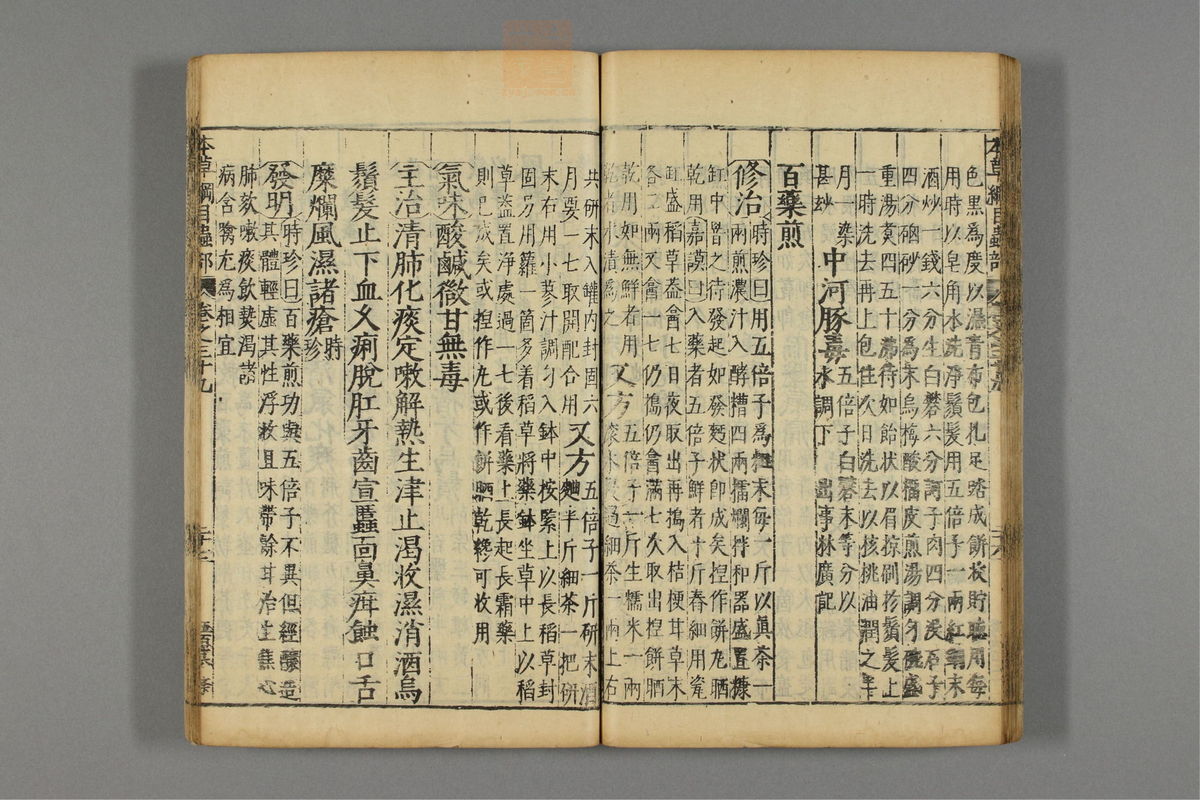 色黑爲度以濕青布包扎足踏成餅收貯聽用每
用時以皂角水洗淨鬚髮用五倍子一兩紅銅末
酒炒一錢六分生白礬六分訶子肉四分沒石子
四分硇砂一分爲末烏梅酸榴皮煎湯調勻碗盛
重湯煮四五十沸待如飴狀以眉掠刷於鬚髮上
一時洗去再上包住次日洗去以核桃油潤之半
月一染
甚玅
中河豚毒
五倍子白礬末等分以
水調下 出事林廣記
百藥煎
修治
時珍曰用五倍子爲粗末每一斤以真茶一
兩煎濃汁入酵糟四兩擂爛拌和器盛置糠
缸中罯之待發起如發麪状即成矣捏作餅丸晒
乾用 嘉謨曰入藥者五倍子鮮者十斤舂細用瓷
缸盛稻草葢罨七日夜取出再搗入桔梗甘草末
各二兩又罨一七仍搗仍罨滿七次取出捏餅晒
乾用如無鮮者用
乾者水漬爲之
又方
五倍子一斤生糯米一兩
滚水浸過細茶一兩上右
共研末入罐内封固六
月要一七取開配合用
又方
五倍子一斤研末酒
麯半斤細茶一把研
末右用小蓼汁調勻入鉢中按緊上以長稻草封
固另用籮一箇多着稻草將藥鉢坐草中上以稻
草葢置淨處過一七後看藥上長起長霜藥
則已成矣或捏作丸或作餅晒乾纔可收用
氣味酸鹹微甘無毒
主治清肺化痰定嗽解熱生津止渴收濕消酒烏
鬚髮止下血久痢脫肛牙齒宣𧏾面鼻疳蝕口舌
糜爛風濕諸瘡時珍
發明
時珍曰百藥煎功與五倍子不異但經釀造
其體輕虛其性浮收且味帶餘耳治上焦心
肺欬嗽痰飲熱渴諸
病含噙尤爲相宜
本草綱目蟲部 卷之三十九